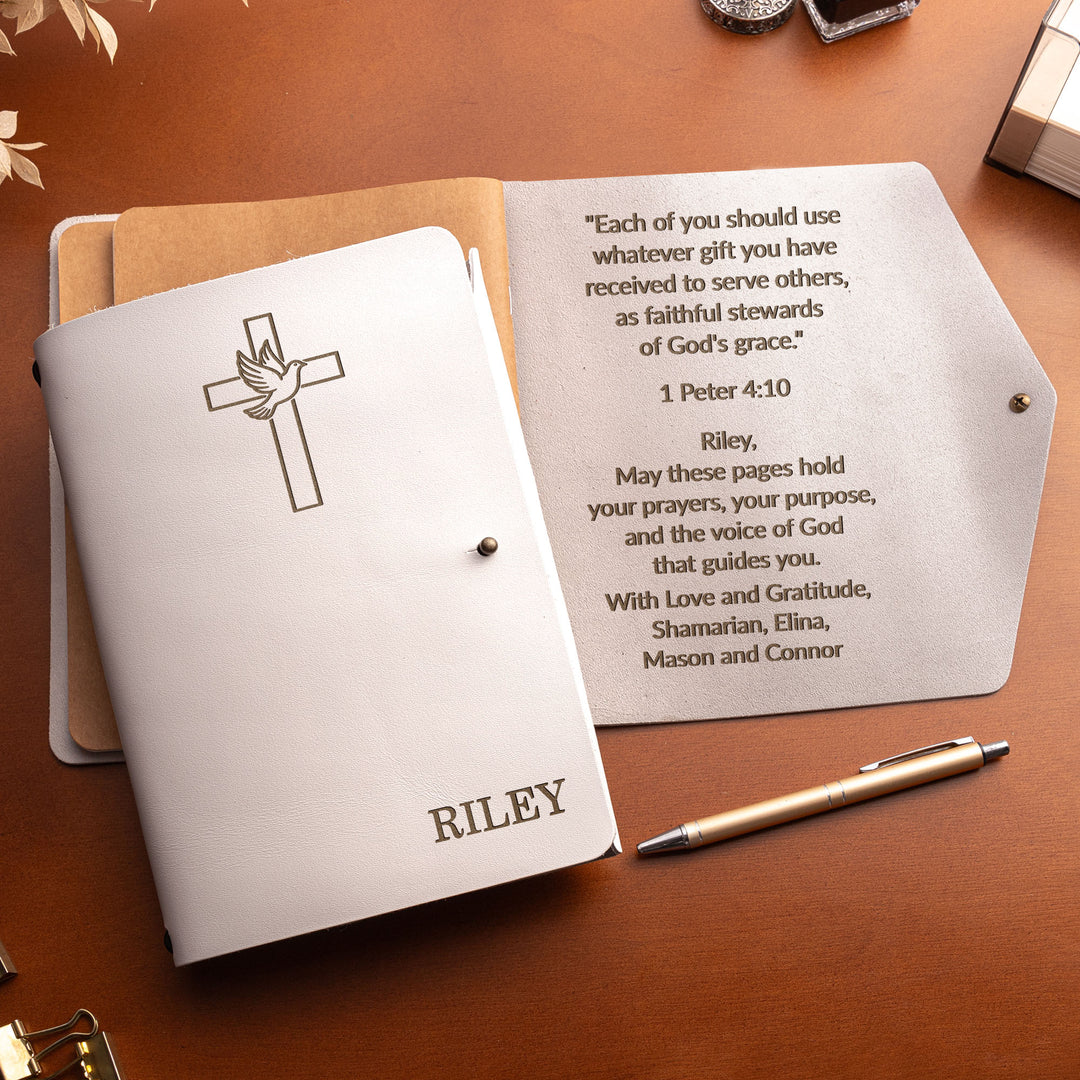 RILEY
"Each of you should use
whatever gift you have
received to serve others,
as faithful stewards
of God's grace."
1 Peter 4:10
Riley,
May these pages hold
your prayers, your purpose,
and the voice of God
that guides you.
With Love and Gratitude,
Shamarian, Elina,
Mason and Connor